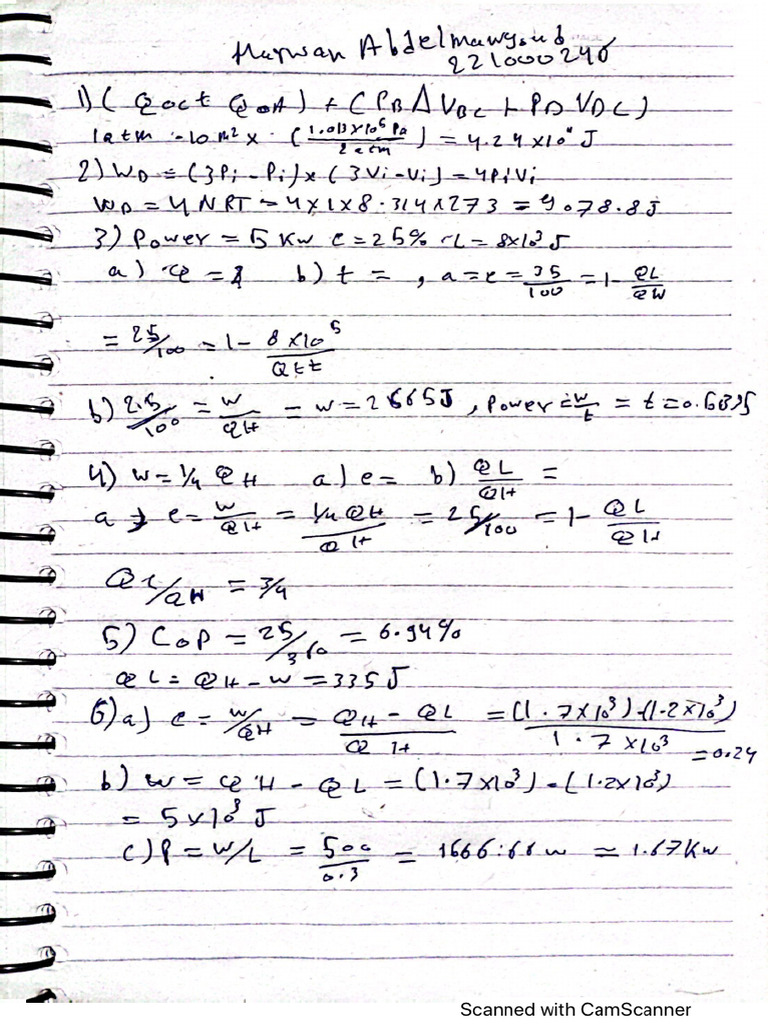 Marwan Abdelmawgoud
221000240
1) ( Qoct QoA) + (PB Δ VBC + PD VDC)
1atm -10 m² x (1.013x10⁵ Pa / 2atm) = 4.24x10⁴ J
2) WD = (3Pi - Pi) x (3Vi - Vi) = 4PiVi
WD = 4NRT = 4x1x8.314x273 = 9078.8J
3) Power = 5 kw e = 25% QL = 8x10³ J
a) Q = b) t = , a = e = 35/100 = 1- QL/QW
= 25/100 = 1- 8x10⁵/Qtt
b) 25/100 = W/QH = w = 2665J , Power = w/t = t = 0.5335
4) w = 1/4 QH a) e = b) QL/QH =
a → e = W/QH = 1/4 QH/QH = 25/100 = 1- QL/QH
QL/QH = 3/4
5) COP = 25/360 = 6.94%
QL = QH - W = 335J
6) a) e = W/QH = QH - QL/QH = (1.7x10³)-(1.2x10³)/1.7x10³ = 0.24
b) W = QH - QL = (1.7x10³) - (1.2x10³)
= 5x10³ J
c) P = W/L = 500/0.3 = 1666.66 w = 1.67Kw
Scanned with CamScanner